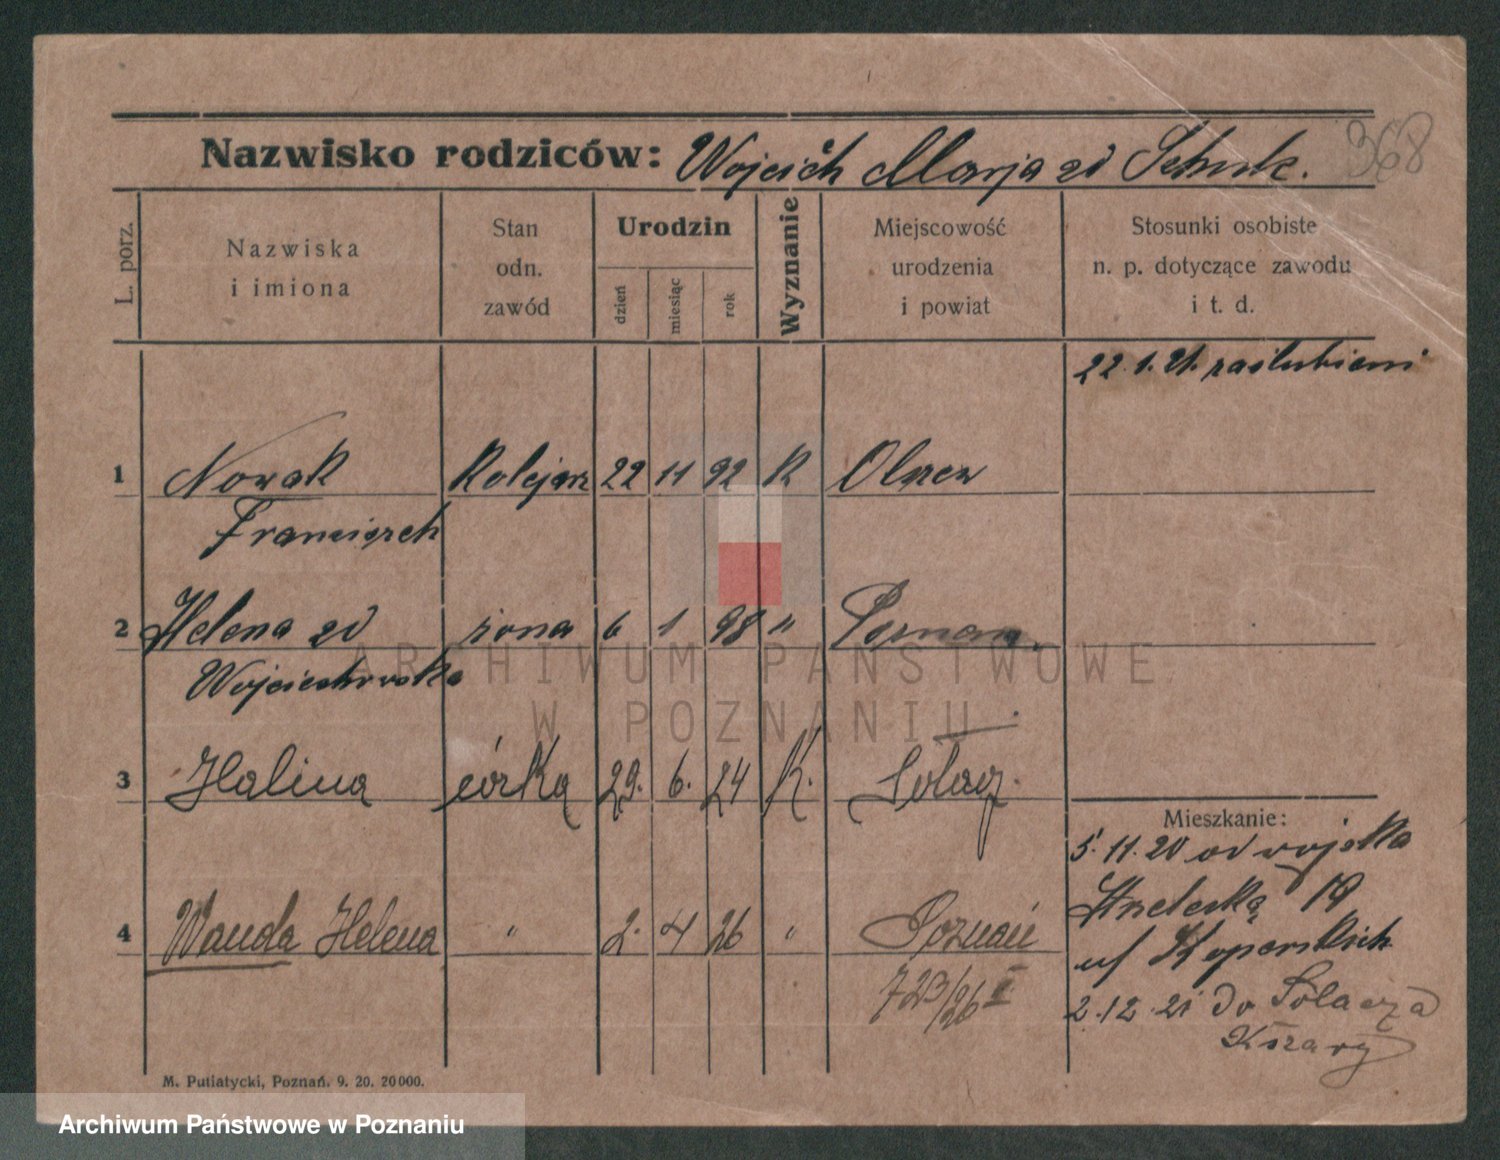 368
Nazwisko rodziców: Wojciech Marja zd
L. porz.
Nazwiska
i imiona
Stan
odn.
zawód
Urodzin
dzień
miesiąc
rok
Wyznanie
Miejscowość
urodzenia
i powiat
Stosunki osobiste
n. p. dotyczące zawodu
i t. d.
22.1.21. zaślubieni
1 Nowak Kolejarz 22 11 92 K
Franciszek
2 Helena zd żona 6 1 98 "
Wojciechowska
ARCHIWUM PAŃSTWOWE
W POZNANIU
3 Halina córka 29. 6. 24 K. Sołacz.
Mieszkanie:
5.11.20 od wojska
4 Wanda Helena " 2. 4 26 " Poznań
Strzelecka 19
723/26 II
2.12.21 do Sołacza
M. Putiatycki, Poznań. 9. 20. 20000.
Archiwum Państwowe w Poznaniu